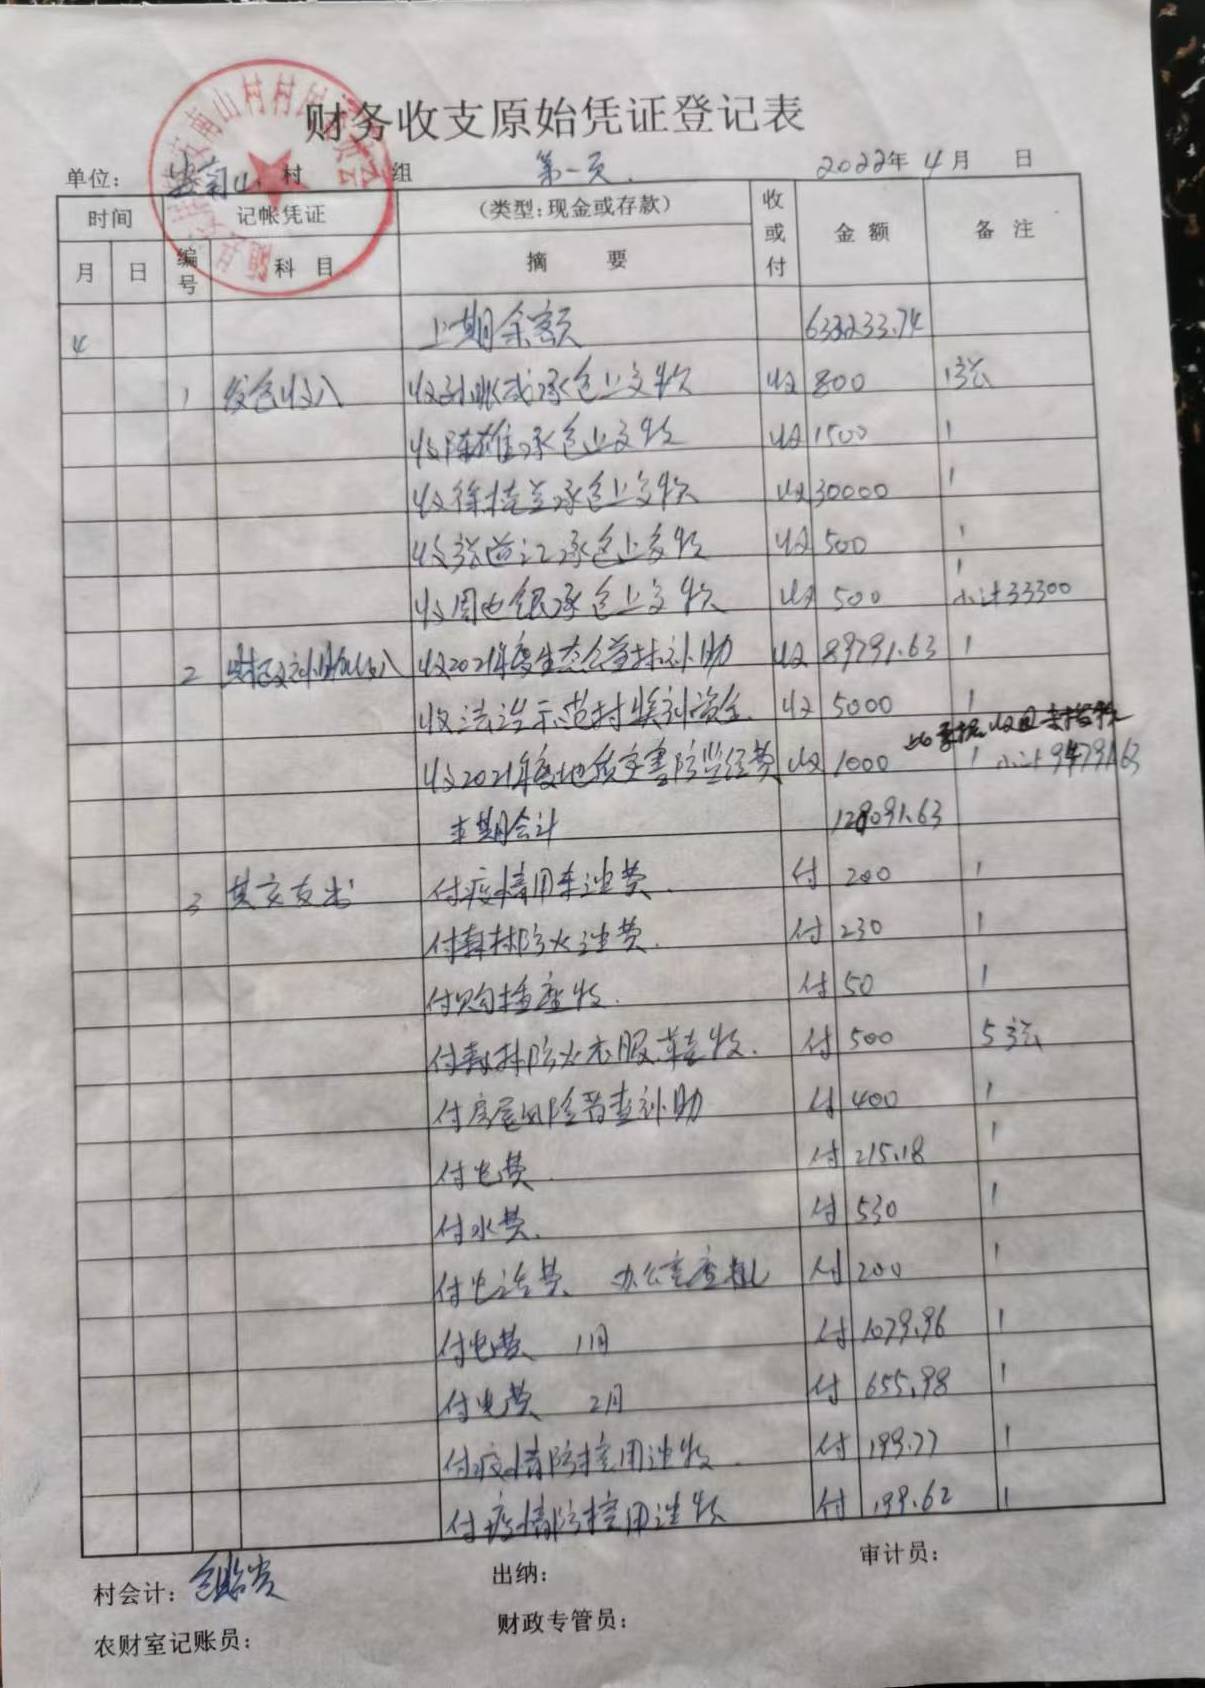 财务收支原始凭证登记表
单位： 南山 村 组 第一页. 2022年 4月 日
时间 记帐凭证 (类型:现金或存款) 收或付 金额 备注
月 日 编号 科目 摘要
4 上期余额 633233.74
1 发包收入 收 承包上交款 收 800 1张
收陈雄承包上交款 收 1500 1
收徐桂兰承包上交款 收 30000 1
收张道江承包上交款 收 500 1
收周 银承包上交款 收 500 1 小计33300
2 财政补助收入 收2021年度生态公益林补助 收 89791.63 1
收法治示范村奖补资金. 收 5000 1
收2021年度地质灾害防监经费 收 1000 1 小计94791.63
本期合计 128091.63
3 其它支出 付疫情用车油费. 付 200 1
付森林防火油费. 付 230 1
付购 款. 付 50 1
付森林防火衣服鞋款. 付 500 5张
付房屋风险普查补助 付 400 1
付电费. 付 215.18 1
付水费. 付 530 1
付电话费 办公室座机 付 200 1
付电费 1月 付 1079.96 1
付电费 2月 付 655.98 1
付疫情防控用油款. 付 199.77 1
付疫情防控用油款 付 199.62 1
村会计： 出纳： 审计员：
农财室记账员： 财政专管员：